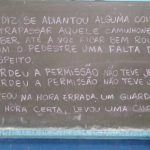 DIZ, SE ADIANTOU ALGUMA COI
TRAPASSAR AQUELE CAMINHONE
BER, ATÉ A VOZ FICAR BEM ROU
M O PEDESTRE UMA FALTA D
SPEITO.
RDEU A PERMISSÃO NÃO TEVE JE
RDEU A PERMISSÃO NÃO TEVE JE
TOU NA HORA ERRADA, UM GUARD
HORA CERTA, LEVOU UMA CAN